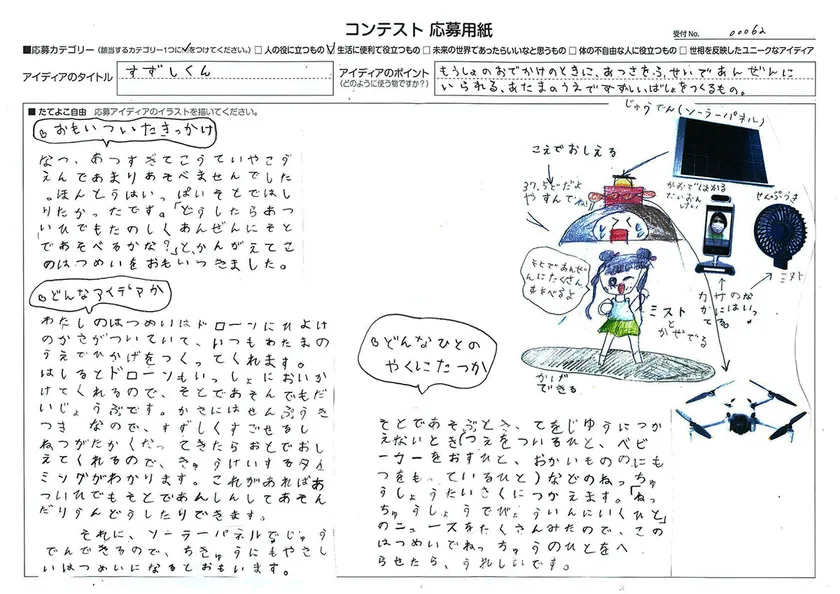 コンテスト 応募用紙
受付No. 00062
■応募カテゴリー (該当するカテゴリー1つに✓をつけてください。) □ 人の役に立つもの ☑ 生活に便利で役立つもの □ 未来の世界であったらいいなと思うもの □ 体の不自由な人に役立つもの □ 世相を反映したユニークなアイディア
アイディアのタイトル
すずしくん
アイディアのポイント
(どのように使う物ですか?)
もうしょのおでかけのときに、あつさをふせいであんぜんに
いられる、あたまのうえですずしいばしょをつくるもの。
■ たてよこ自由 応募アイディアのイラストを描いてください。
おもいついたきっかけ
なつ、あつすぎてこうていやこう
えんであまりあそべませんでした
。ほんとうはいっぱいそとではし
りたかったです。「どうしたらあつ
いひでもたのしくあんぜんにそと
であそべるかな?」と、かんがえてこ
のはつめいをおもいつきました。
どんなアイデアか
わたしのはつめいはドローンにひよけ
のかさがついていて、いつもわたまの
うえでひかげをつくってくれます。
はしるとドローンもいっしょにおいか
けてくれるので、そとであそんでもだ
いじょうぶです。かさにはせんぷうき
つき なので、すずしくすごせるし
ねつがたかくなってきたらおとでおし
えてくれるので、きゅうけいするタイ
ミングがわかります。これがあればあ
ついひでもそとであんしんしてあそん
だりうんどうしたりできます。
それに、ソーラーパネルでじゅう
でんできるので、ちきゅうにもやさし
いはつめいになるとおもいます。
どんなひとの
やくにたつか
そとであそぶとき、てをじゆうにつか
えないとき(つえをついるひと、ベビ
ーカーをおすひと、おかいもののにも
つをもっているひと)などのねっちゅ
うしょうたいさくにつかえます。「ねっ
ちゅうしょうでびょういんにいくひと」
のニュースをたくさんみたので、この
はつめいでねっちゅうのひとをへ
らせたら、うれしいです。
じゅうでん(ソーラーパネル)
こえでおしえる
37.5どだよ
やすんでね!
かおではかる
たいおん
けい
せんぷうき
ミスト
そとであんぜ
んにたくさん
あそべるよ
ミスト
と
かぜでる
カサのな
かにはいっ
てる。
かげ
できる